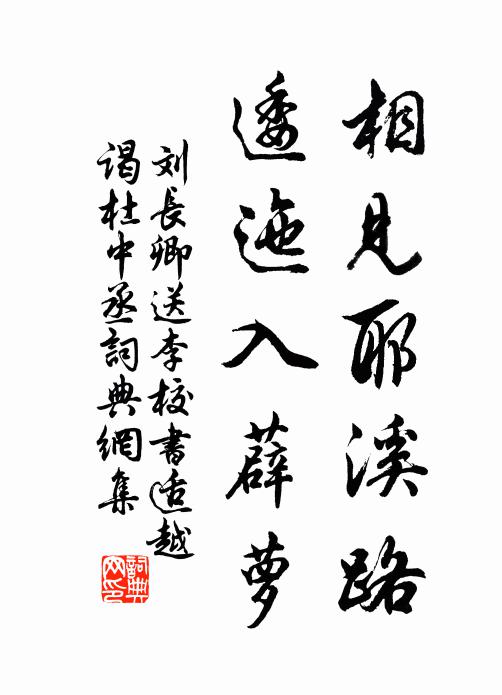 相見耶溪路
逶迤入薜萝
刘長卿送李校書适越
谒杜中丞詞典網集
詞典网印